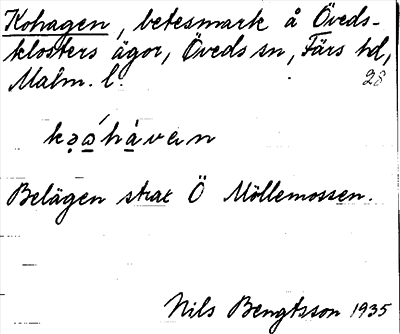 Kohagen, betesmark å Öveds-
klosters ägor, Öveds sn, Färs hd,
Malm. l. 28
Belägen strax Ö Möllemossen.
Nils Bengtsson 1935